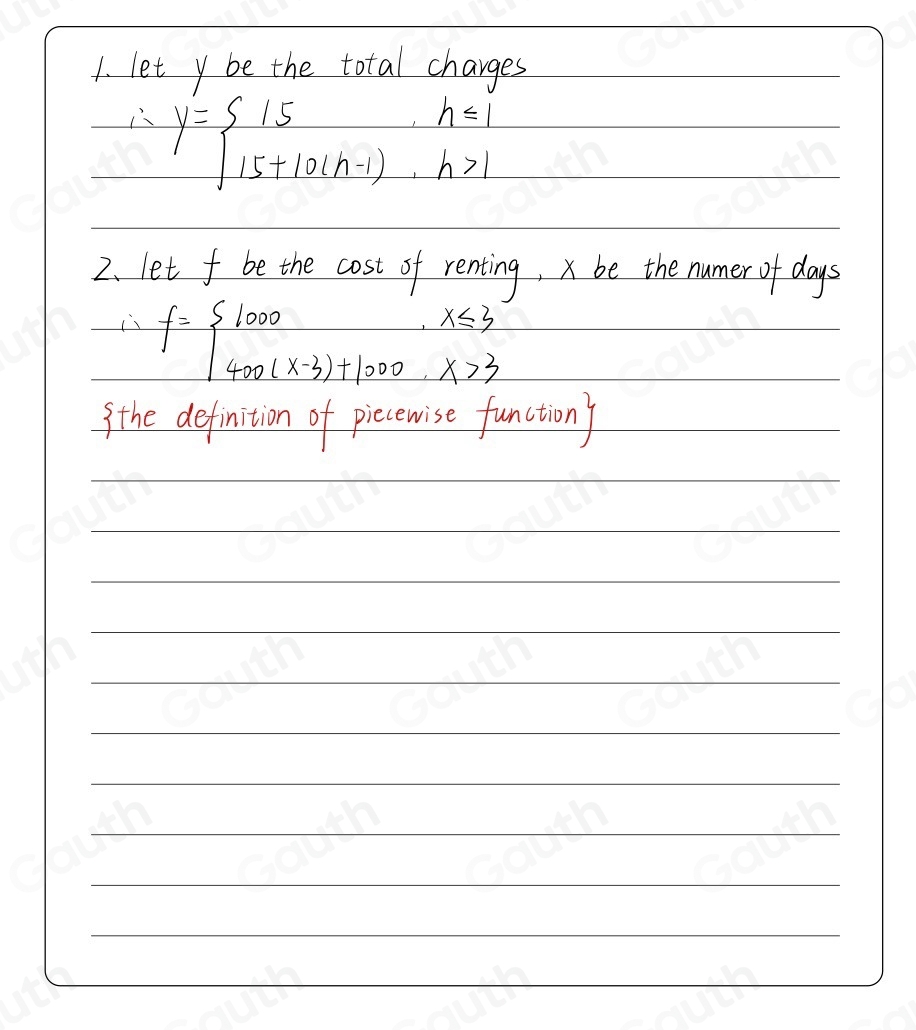 1. let y be the total charges
∴ y = { 15 , h ≤ 1
15+10(h-1) , h > 1
2. let f be the cost of renting, x be the numer of days
∴ f = { 1000 , x ≤ 3
400(x-3)+1000 , x > 3
{the definition of piecewise function}
Gauth